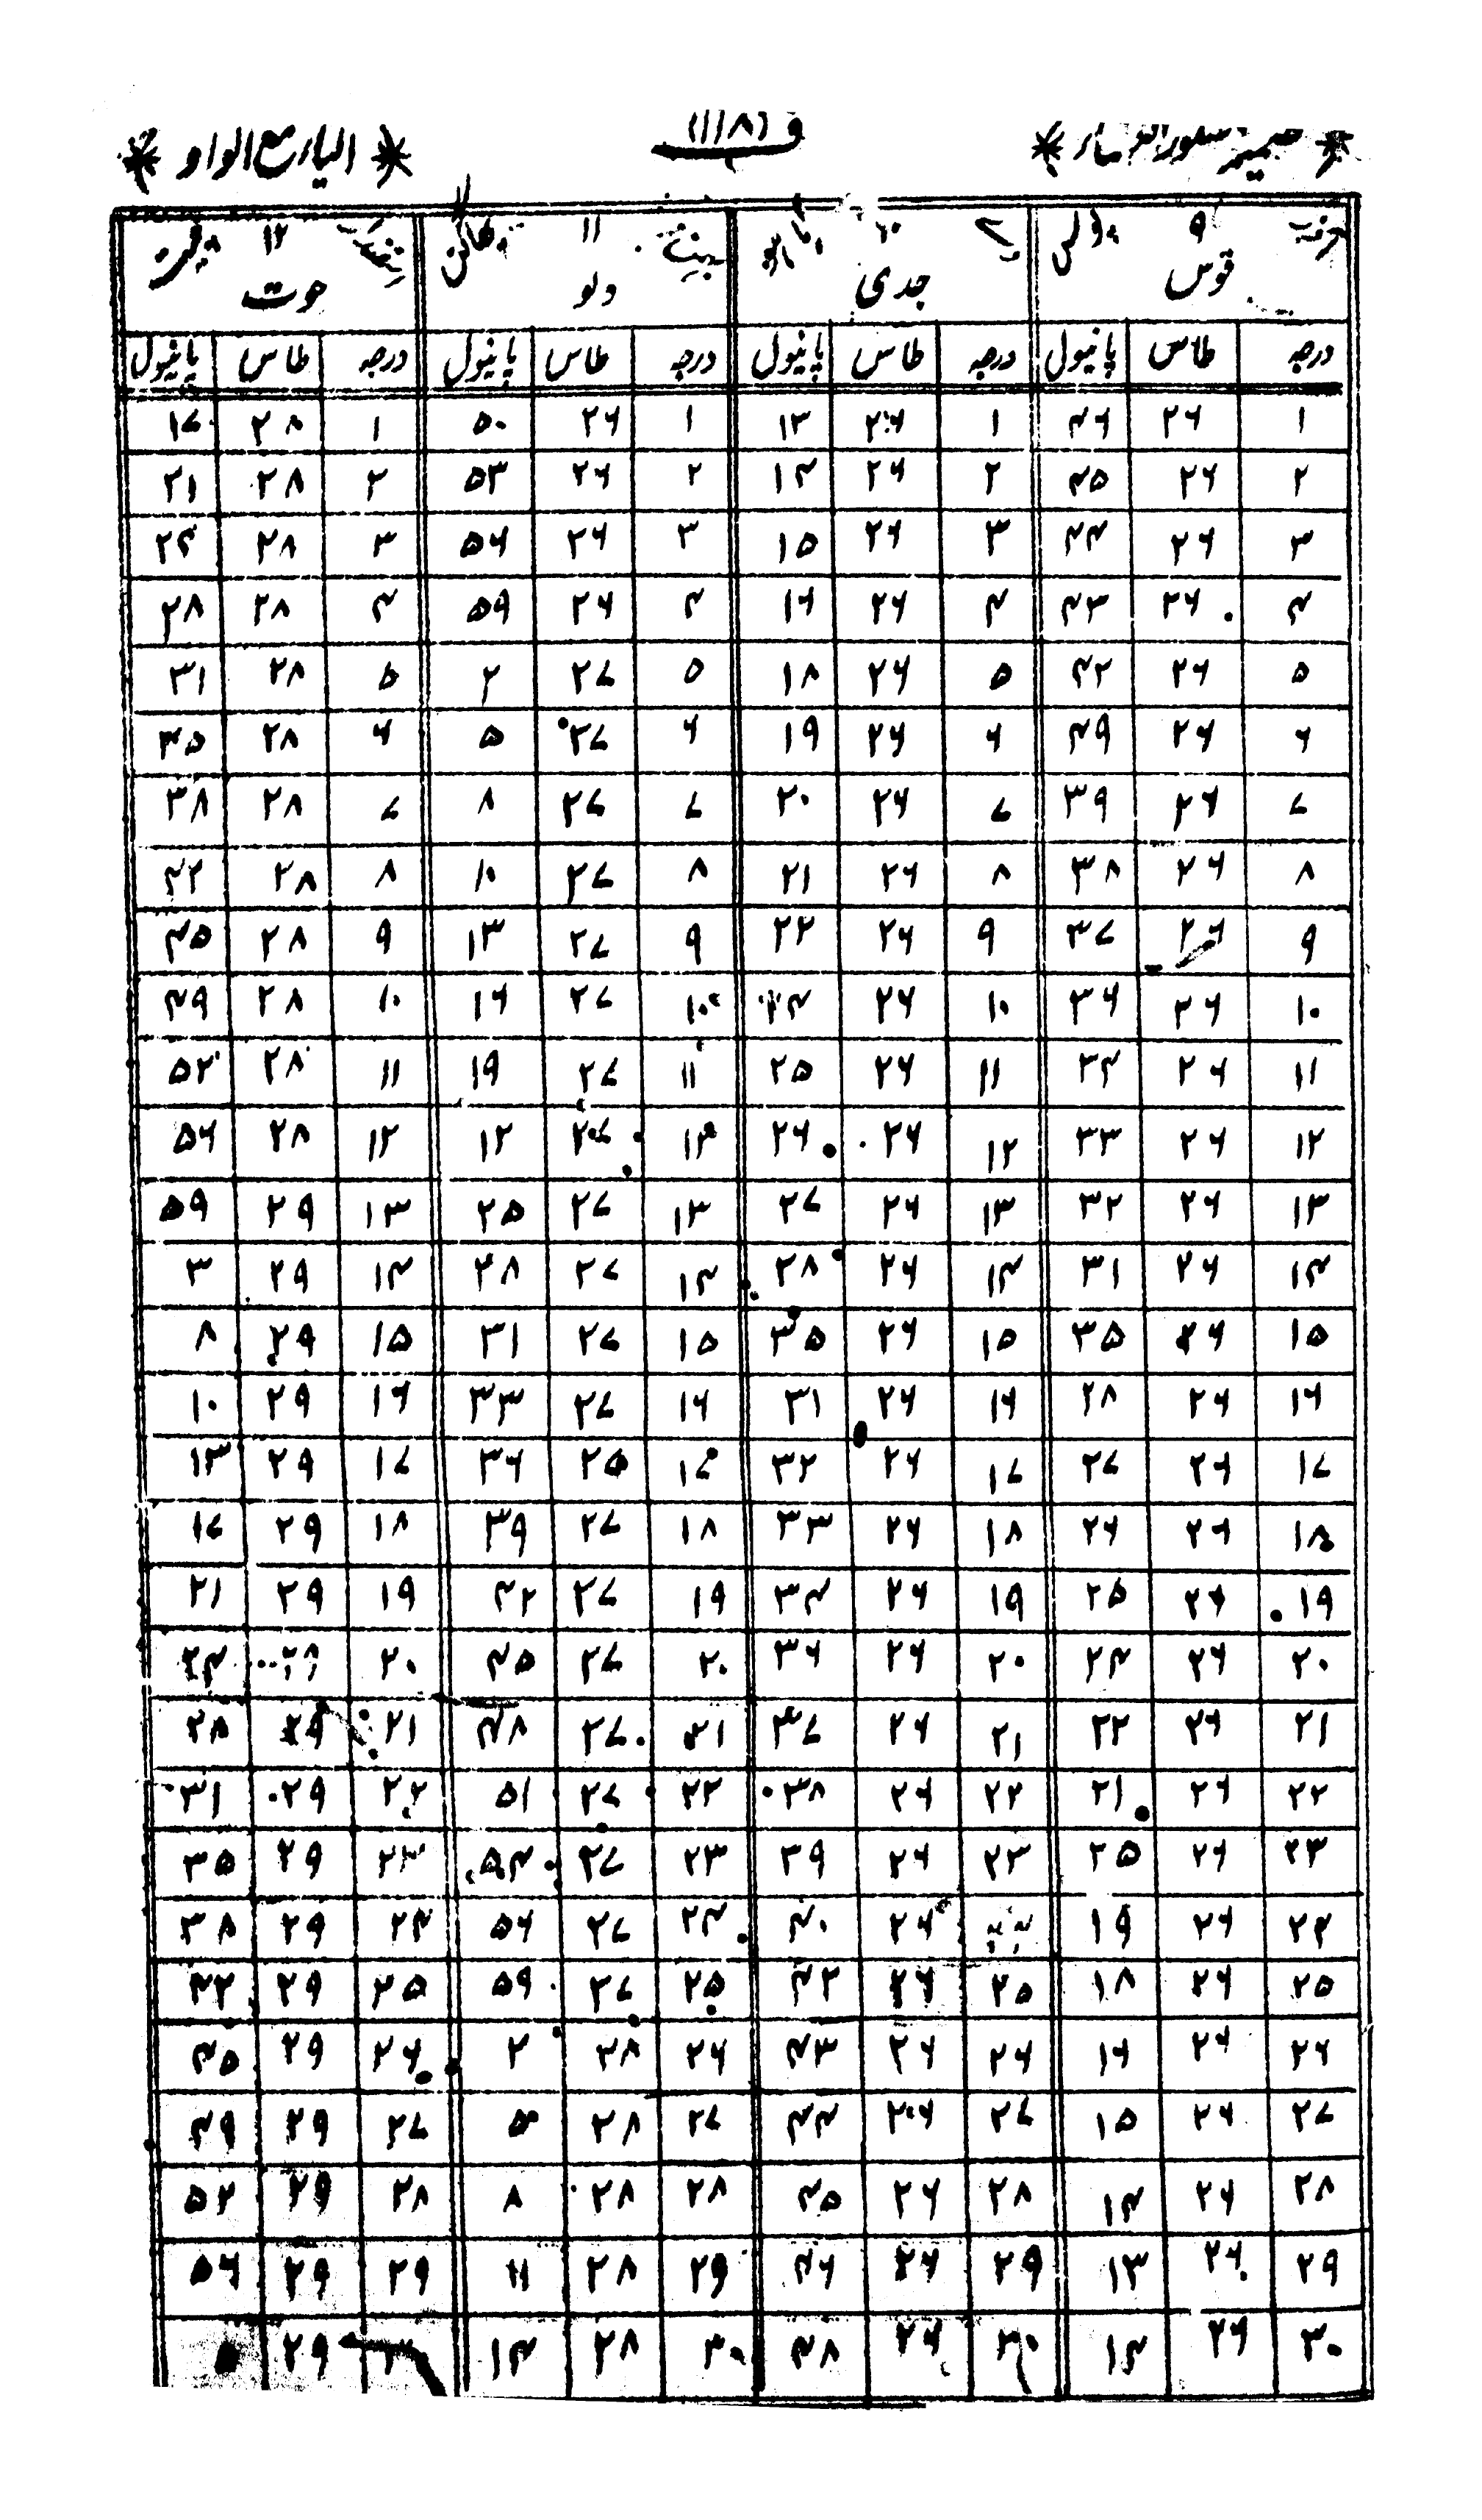 الیاء مع الواو
(۱۱۸) و
۹
۱۰
۱۱
۱۲
قوس جدی دلو حوت
درجہ طاس پانیول درجہ طاس پانیول درجہ طاس پانیول درجہ طاس پانیول
۱ ۲۶ ۴۶ ۱ ۲۶ ۱۳ ۱ ۲۶ ۵۰ ۱ ۲۸ ۱۷
۲ ۲۶ ۴۵ ۲ ۲۶ ۱۴ ۲ ۲۶ ۵۳ ۲ ۲۸ ۲۱
۳ ۲۶ ۴۴ ۳ ۲۶ ۱۵ ۳ ۲۶ ۵۶ ۳ ۲۸ ۲۴
۴ ۲۶ ۴۳ ۴ ۲۶ ۱۶ ۴ ۲۶ ۵۹ ۴ ۲۸ ۲۸
۵ ۲۶ ۴۲ ۵ ۲۶ ۱۸ ۵ ۲۷ ۲ ۵ ۲۸ ۳۱
۶ ۲۶ ۴۹ ۶ ۲۶ ۱۹ ۶ ۲۷ ۵ ۶ ۲۸ ۳۵
۷ ۲۶ ۳۹ ۷ ۲۶ ۲۰ ۷ ۲۷ ۸ ۷ ۲۸ ۳۸
۸ ۲۶ ۳۸ ۸ ۲۶ ۲۱ ۸ ۲۷ ۱۰ ۸ ۲۸ ۴۲
۹ ۲۶ ۳۷ ۹ ۲۶ ۲۲ ۹ ۲۷ ۱۳ ۹ ۲۸ ۴۵
۱۰ ۲۶ ۳۶ ۱۰ ۲۶ ۲۴ ۱۰ ۲۷ ۱۶ ۱۰ ۲۸ ۴۹
۱۱ ۲۶ ۳۴ ۱۱ ۲۶ ۲۵ ۱۱ ۲۷ ۱۹ ۱۱ ۲۸ ۵۲
۱۲ ۲۶ ۳۳ ۱۲ ۲۶ ۲۶ ۱۲ ۲۷ ۱۲ ۱۲ ۲۸ ۵۶
۱۳ ۲۶ ۳۲ ۱۳ ۲۶ ۲۷ ۱۳ ۲۷ ۲۵ ۱۳ ۲۹ ۵۹
۱۴ ۲۶ ۳۱ ۱۴ ۲۶ ۲۸ ۱۴ ۲۷ ۲۸ ۱۴ ۲۹ ۳
۱۵ ۲۶ ۳۵ ۱۵ ۲۶ ۳۵ ۱۵ ۲۷ ۳۱ ۱۵ ۲۹ ۸
۱۶ ۲۶ ۲۸ ۱۶ ۲۶ ۳۱ ۱۶ ۲۷ ۳۳ ۱۶ ۲۹ ۱۰
۱۷ ۲۶ ۲۷ ۱۷ ۲۶ ۳۲ ۱۷ ۲۵ ۳۶ ۱۷ ۲۹ ۱۳
۱۸ ۲۶ ۲۶ ۱۸ ۲۶ ۳۳ ۱۸ ۲۷ ۳۹ ۱۸ ۲۹ ۱۷
۱۹ ۲۶ ۲۵ ۱۹ ۲۶ ۳۴ ۱۹ ۲۷ ۴۲ ۱۹ ۲۹ ۲۱
۲۰ ۲۶ ۲۴ ۲۰ ۲۶ ۳۶ ۲۰ ۲۷ ۴۵ ۲۰ ۲۹ ۲۴
۲۱ ۲۶ ۲۲ ۲۱ ۲۶ ۳۷ ۲۱ ۲۷ ۴۸ ۲۱ ۲۹ ۲۸
۲۲ ۲۶ ۲۱ ۲۲ ۲۶ ۳۸ ۲۲ ۲۷ ۵۱ ۲۲ ۲۹ ۳۱
۲۳ ۲۶ ۲۵ ۲۳ ۲۶ ۳۹ ۲۳ ۲۷ ۵۴ ۲۳ ۲۹ ۳۵
۲۴ ۲۶ ۱۹ ۲۴ ۲۶ ۴۰ ۲۴ ۲۷ ۵۶ ۲۴ ۲۹ ۳۸
۲۵ ۲۶ ۱۸ ۲۵ ۲۶ ۴۲ ۲۵ ۲۷ ۵۹ ۲۵ ۲۹ ۴۲
۲۶ ۲۶ ۱۶ ۲۶ ۲۶ ۴۳ ۲۶ ۲۸ ۲ ۲۶ ۲۹ ۴۵
۲۷ ۲۶ ۱۵ ۲۷ ۲۶ ۴۴ ۲۷ ۲۸ ۵ ۲۷ ۲۹ ۴۹
۲۸ ۲۶ ۱۴ ۲۸ ۲۶ ۴۵ ۲۸ ۲۸ ۸ ۲۸ ۲۹ ۵۲
۲۹ ۲۶ ۱۳ ۲۹ ۲۶ ۴۶ ۲۹ ۲۸ ۱۱ ۲۹ ۲۹ ۵۶
۳۰ ۲۶ ۱۴ ۳۰ ۲۶ ۴۸ ۳۰ ۲۸ ۱۴ ۲۹